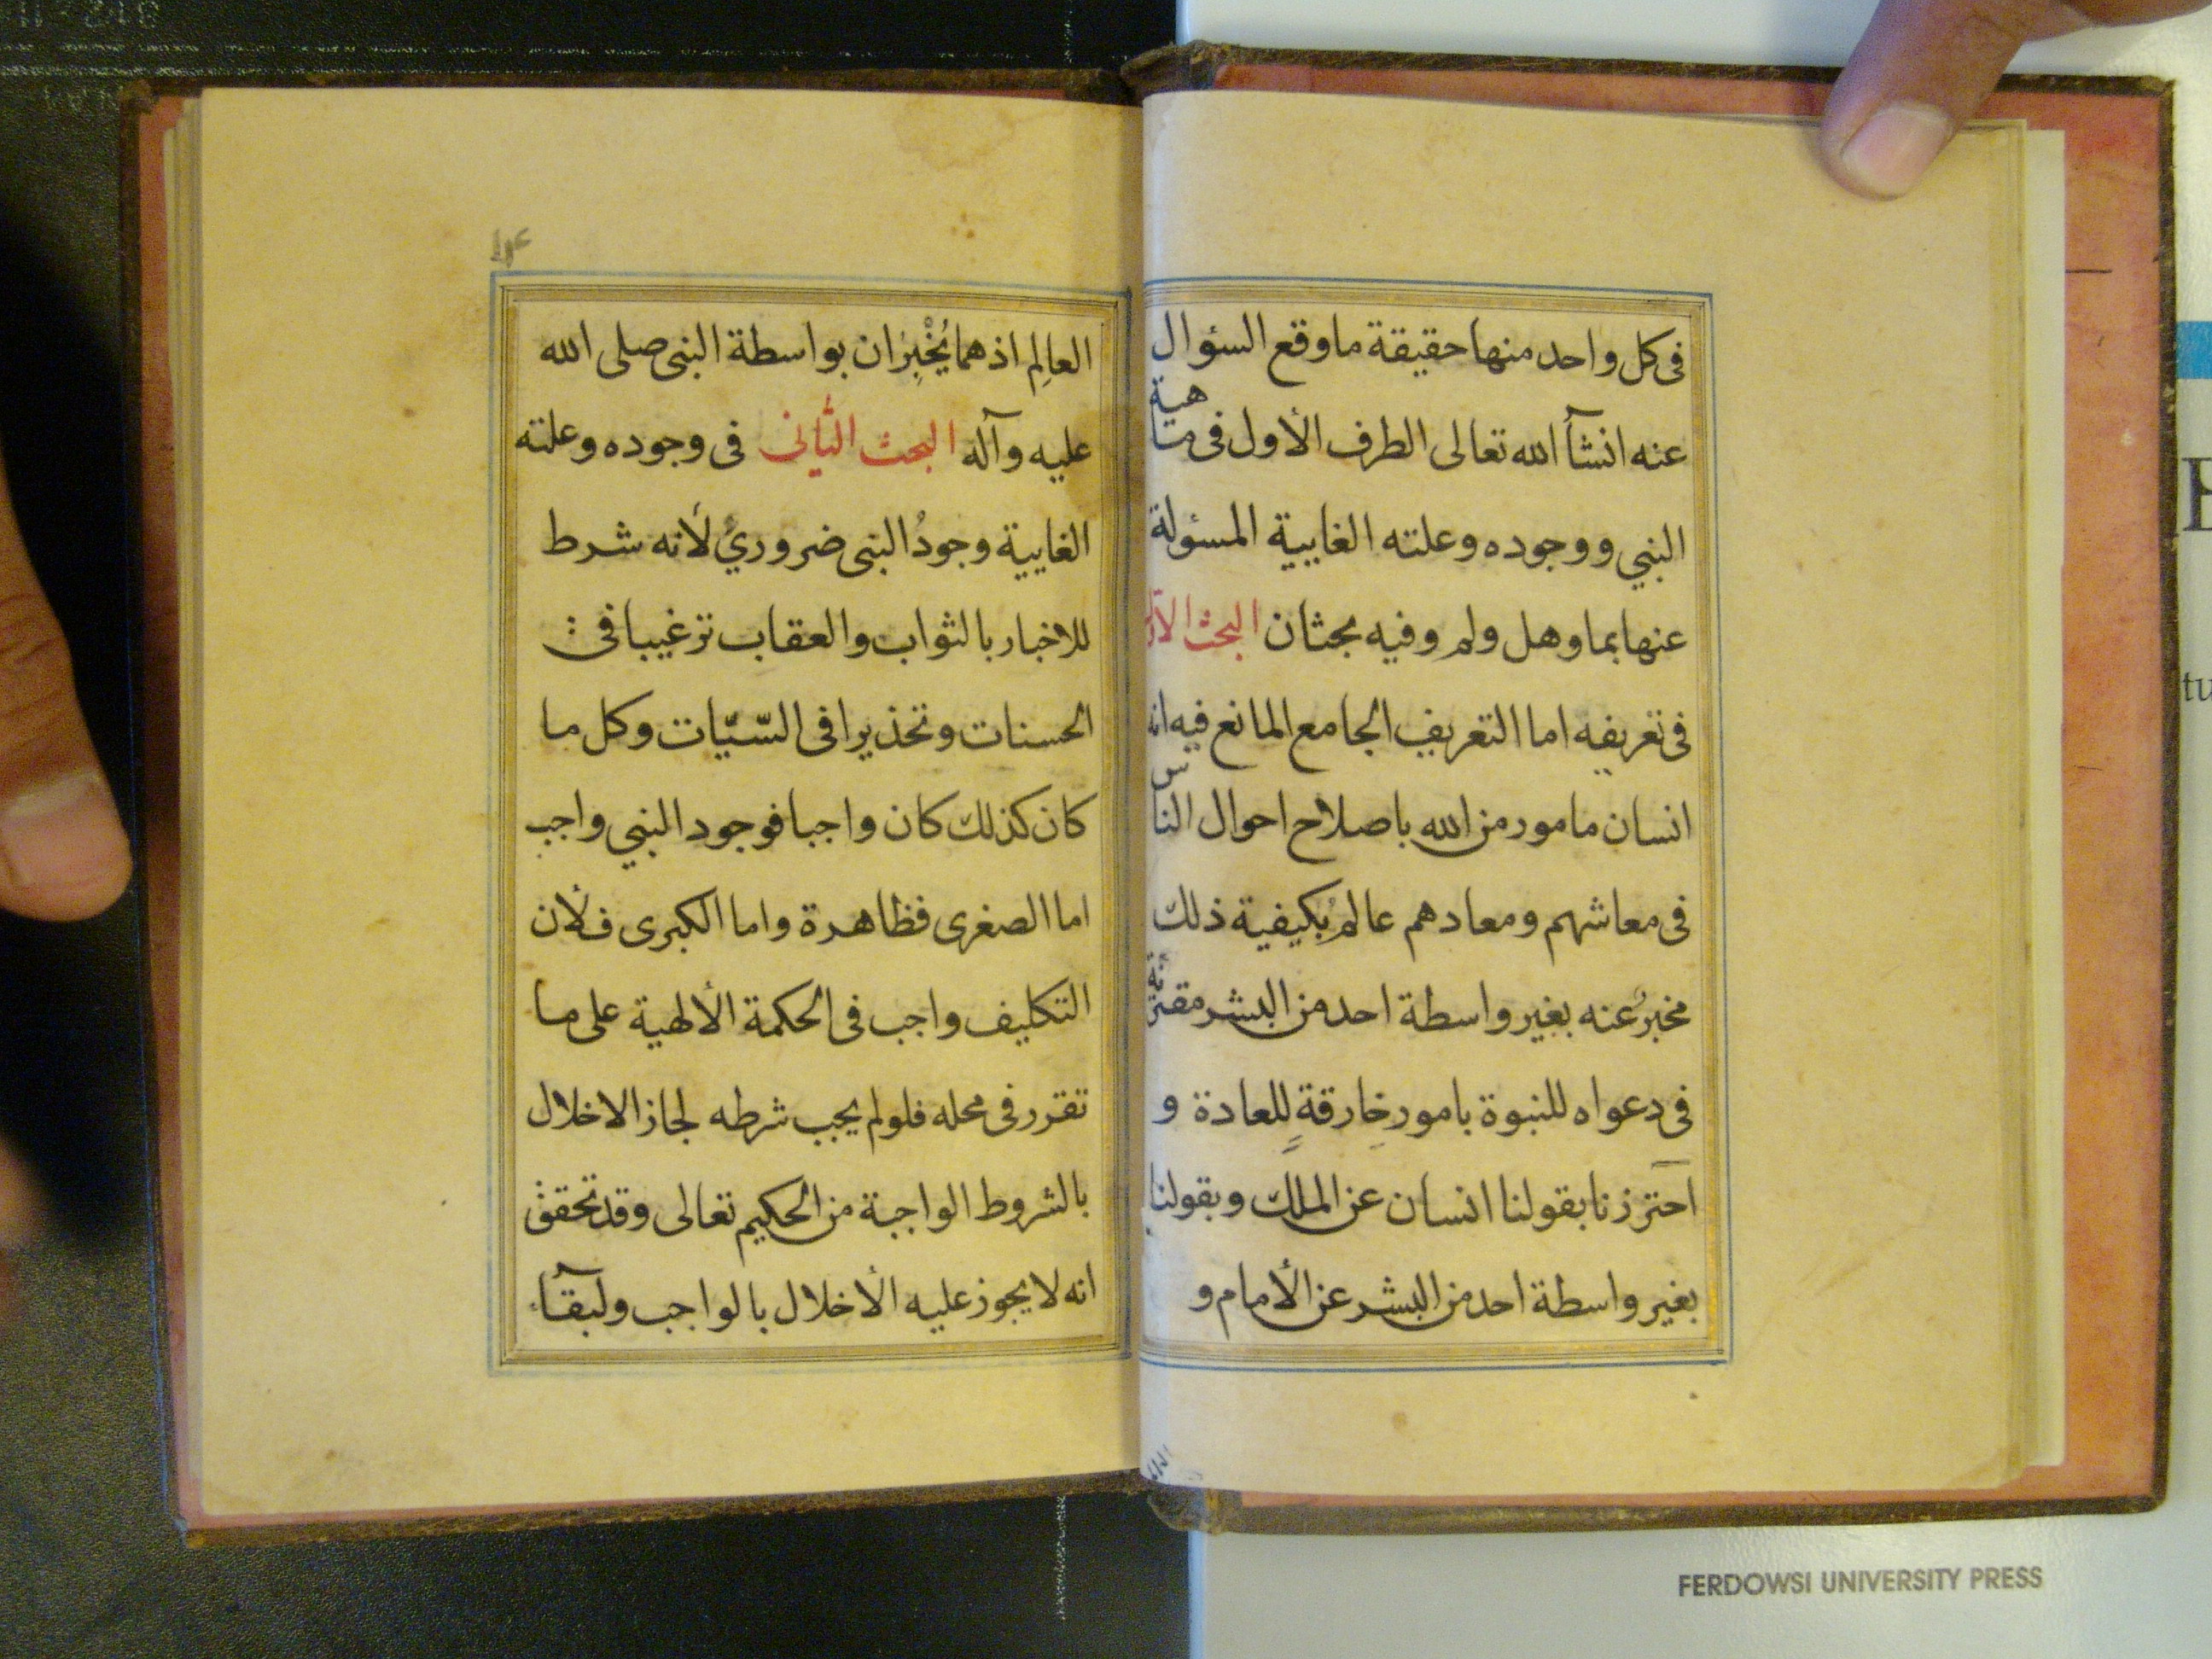 فى كل واحد منها حقيقة ما وقع السؤال
عنه انشأ الله تعالى الطرف الأول فى ماهية
النبي ووجوده وعلته الغايية المسئولة
عنها بما وهل ولم وفيه بحثان البحث الأول
فى تعريفه اما التعريف الجامع المانع فيه انه
انسان مامور من الله باصلاح احوال الناس
فى معاشهم ومعادهم عالمٌ بكيفية ذلك
مخبرٌ عنه بغير واسطة احد من البشر مقترنة
فى دعواه للنبوة بامور خارقةٍ للعادة و
احترزنا بقولنا انسان عن الملك وبقولنا
بغير واسطة احد من البشر عن الأمام و
العالِم اذ هما يُخْبِرَان بواسطة النبى صلى الله
عليه وآله البحث الثانى فى وجوده وعلته
الغايية وجودُ النبى ضروريٌ لأنه شرط
للاخبار بالثواب والعقاب ترغيبا فى
الحسنات وتحذيرا فى السّيّات وكل ما
كان كذلك كان واجبا فوجود النبي واجب
اما الصغرى فظاهرة واما الكبرى فلأن
التكليف واجب فى الحكمة الألهية على ما
تقرر فى محله فلو لم يجب شرطه لجاز الاخلال
بالشروط الواجبة من الحكيم تعالى وقد تحقق
انه لا يجوز عليه الأخلال بالواجب ولبقآء
FERDOWSI UNIVERSITY PRESS